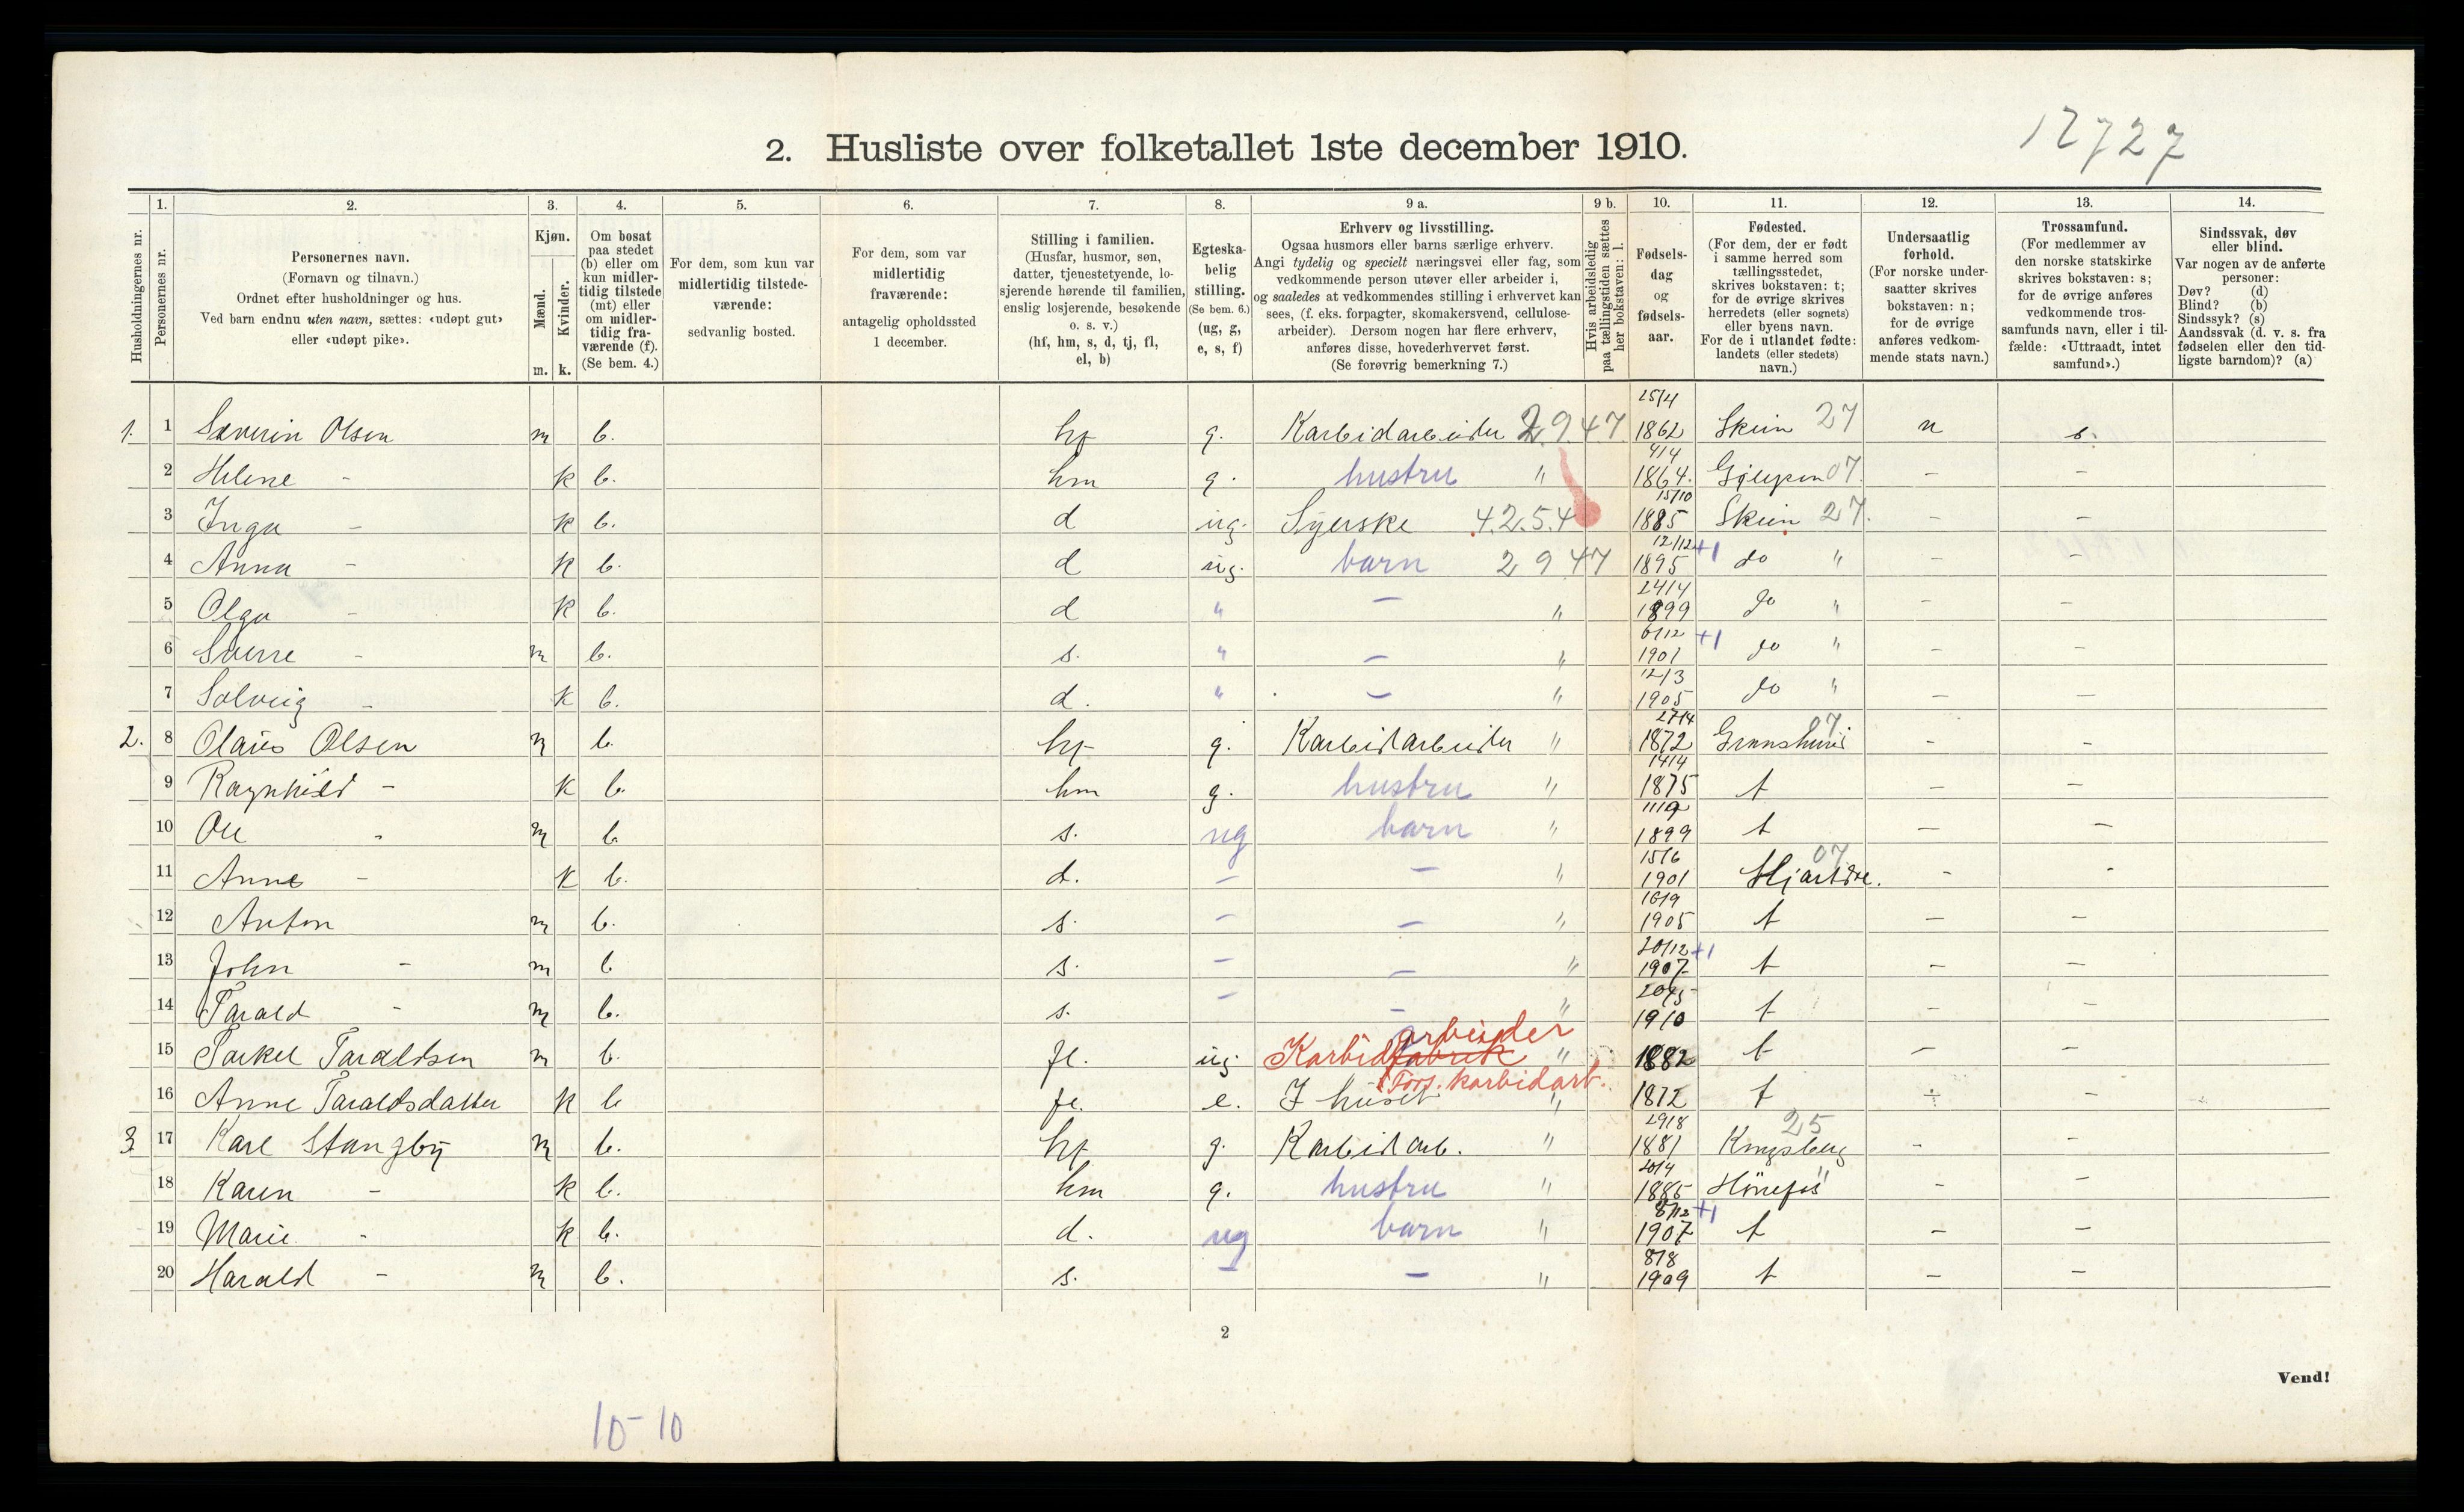 12727
2. Husliste over folketallet 1ste december 1910.
Husholdningernes nr.
1. Personernes nr.
2. Personernes navn. (Fornavn og tilnavn.) Ordnet efter husholdninger og hus. Ved barn endnu uten navn, sættes: «udøpt gut» eller «udøpt pike».
3. Kjøn. Mænd. m. Kvinder. k.
4. Om bosat paa stedet (b) eller om kun midlertidig tilstede (mt) eller om midlertidig fraværende (f). (Se bem. 4.)
5. For dem, som kun var midlertidig tilstedeværende: sedvanlig bosted.
6. For dem, som var midlertidig fraværende: antagelig opholdssted 1 december.
7. Stilling i familien. (Husfar, husmor, søn, datter, tjenestetyende, losjerende hørende til familien, enslig losjerende, besøkende o. s. v.) (hf, hm, s, d, tj, fl, el, b)
8. Egteskabelig stilling. (Se bem. 6.) (ug, g, e, s, f)
9 a. Erhverv og livsstilling. Ogsaa husmors eller barns særlige erhverv. Angi tydelig og specielt næringsvei eller fag, som vedkommende person utøver eller arbeider i, og saaledes at vedkommendes stilling i erhvervet kan sees, (f. eks. forpagter, skomakersvend, cellulosearbeider). Dersom nogen har flere erhverv, anføres disse, hovederhvervet først. (Se forøvrig bemerkning 7.)
9 b. Hvis arbeidsledig paa tællingstiden sættes her bokstaven: l.
10. Fødselsdag og fødselsaar.
11. Fødested. (For dem, der er født i samme herred som tællingsstedet, skrives bokstaven: t; for de øvrige skrives herredets (eller sognets) eller byens navn. For de i utlandet fødte: landets (eller stedets) navn.)
12. Undersaatlig forhold. (For norske undersaatter skrives bokstaven: n; for de øvrige anføres vedkommende stats navn.)
13. Trossamfund. (For medlemmer av den norske statskirke skrives bokstaven: s; for de øvrige anføres vedkommende trossamfunds navn, eller i tilfælde: «Uttraadt, intet samfund».)
14. Sindssvak, døv eller blind. Var nogen av de anførte personer: Døv? (d) Blind? (b) Sindssyk? (s) Aandssvak (d. v. s. fra fødselen eller den tidligste barndom)? (a)
1. 1 Severin Olsen m b. hf g. Karbidarbeider 2.9.47. 25/4 1862 Skien 27 n s.
2 Helene - k b. hm g. hustru " 4/4 1864. 07 - -
3 Inga - k b. d ug. Syerske 4.2.5.4 15/10 1885 Skien 27. - -
4 Anna - k b. d ug. barn 2947 12/12 1895 +1 do " - -
5 Olga - k b. d " - " 24/4 1899 do " - -
6 Sverre - m b. s. " - " 6/12 1901 +1 do " - -
7 Solveig - k b. d. " - " 12/3 1905 do " - -
2. 8 Olaus Olsen m b. hf g. Karbidarbeider " 27/4 1872 Gransherred 07 - -
9 Ragnhild - k b. hm g. hustru " 14/4 1875 t - -
10 Ole - m b. s. ug barn " 11/9 1899 t - -
11 Anne - k b. d. - - " 15/6 1901 Hjartdal. 07 - -
12 Anton m b. s. - - " 16/9 1905 t - -
13 John - m b s. - - " 20/12 1907 +1 t - -
14 Tarald - m b. s. - - " 1910 t - -
15 Tarkel Taraldsen m b. fl. ug. Karbidfabrik arbeider " 1882 t - -
16 Anne Taraldsdatter k b fl. e. I huset Fors. karbidarb. " 1812 t - -
3 17 Karl Stangby m b. hf g. Karbidarb. " 29/8 1881 Kongsberg 25 - -
18 Karen - k b. hm g. hustru " 20/4 1885 Hönefos " - -
19 Marie - k b. d. ug barn " 8/12 1907 +1 t - -
20 Harald - m b. s. - - " 8/8 1909 t - -
2
Vend!
10-10